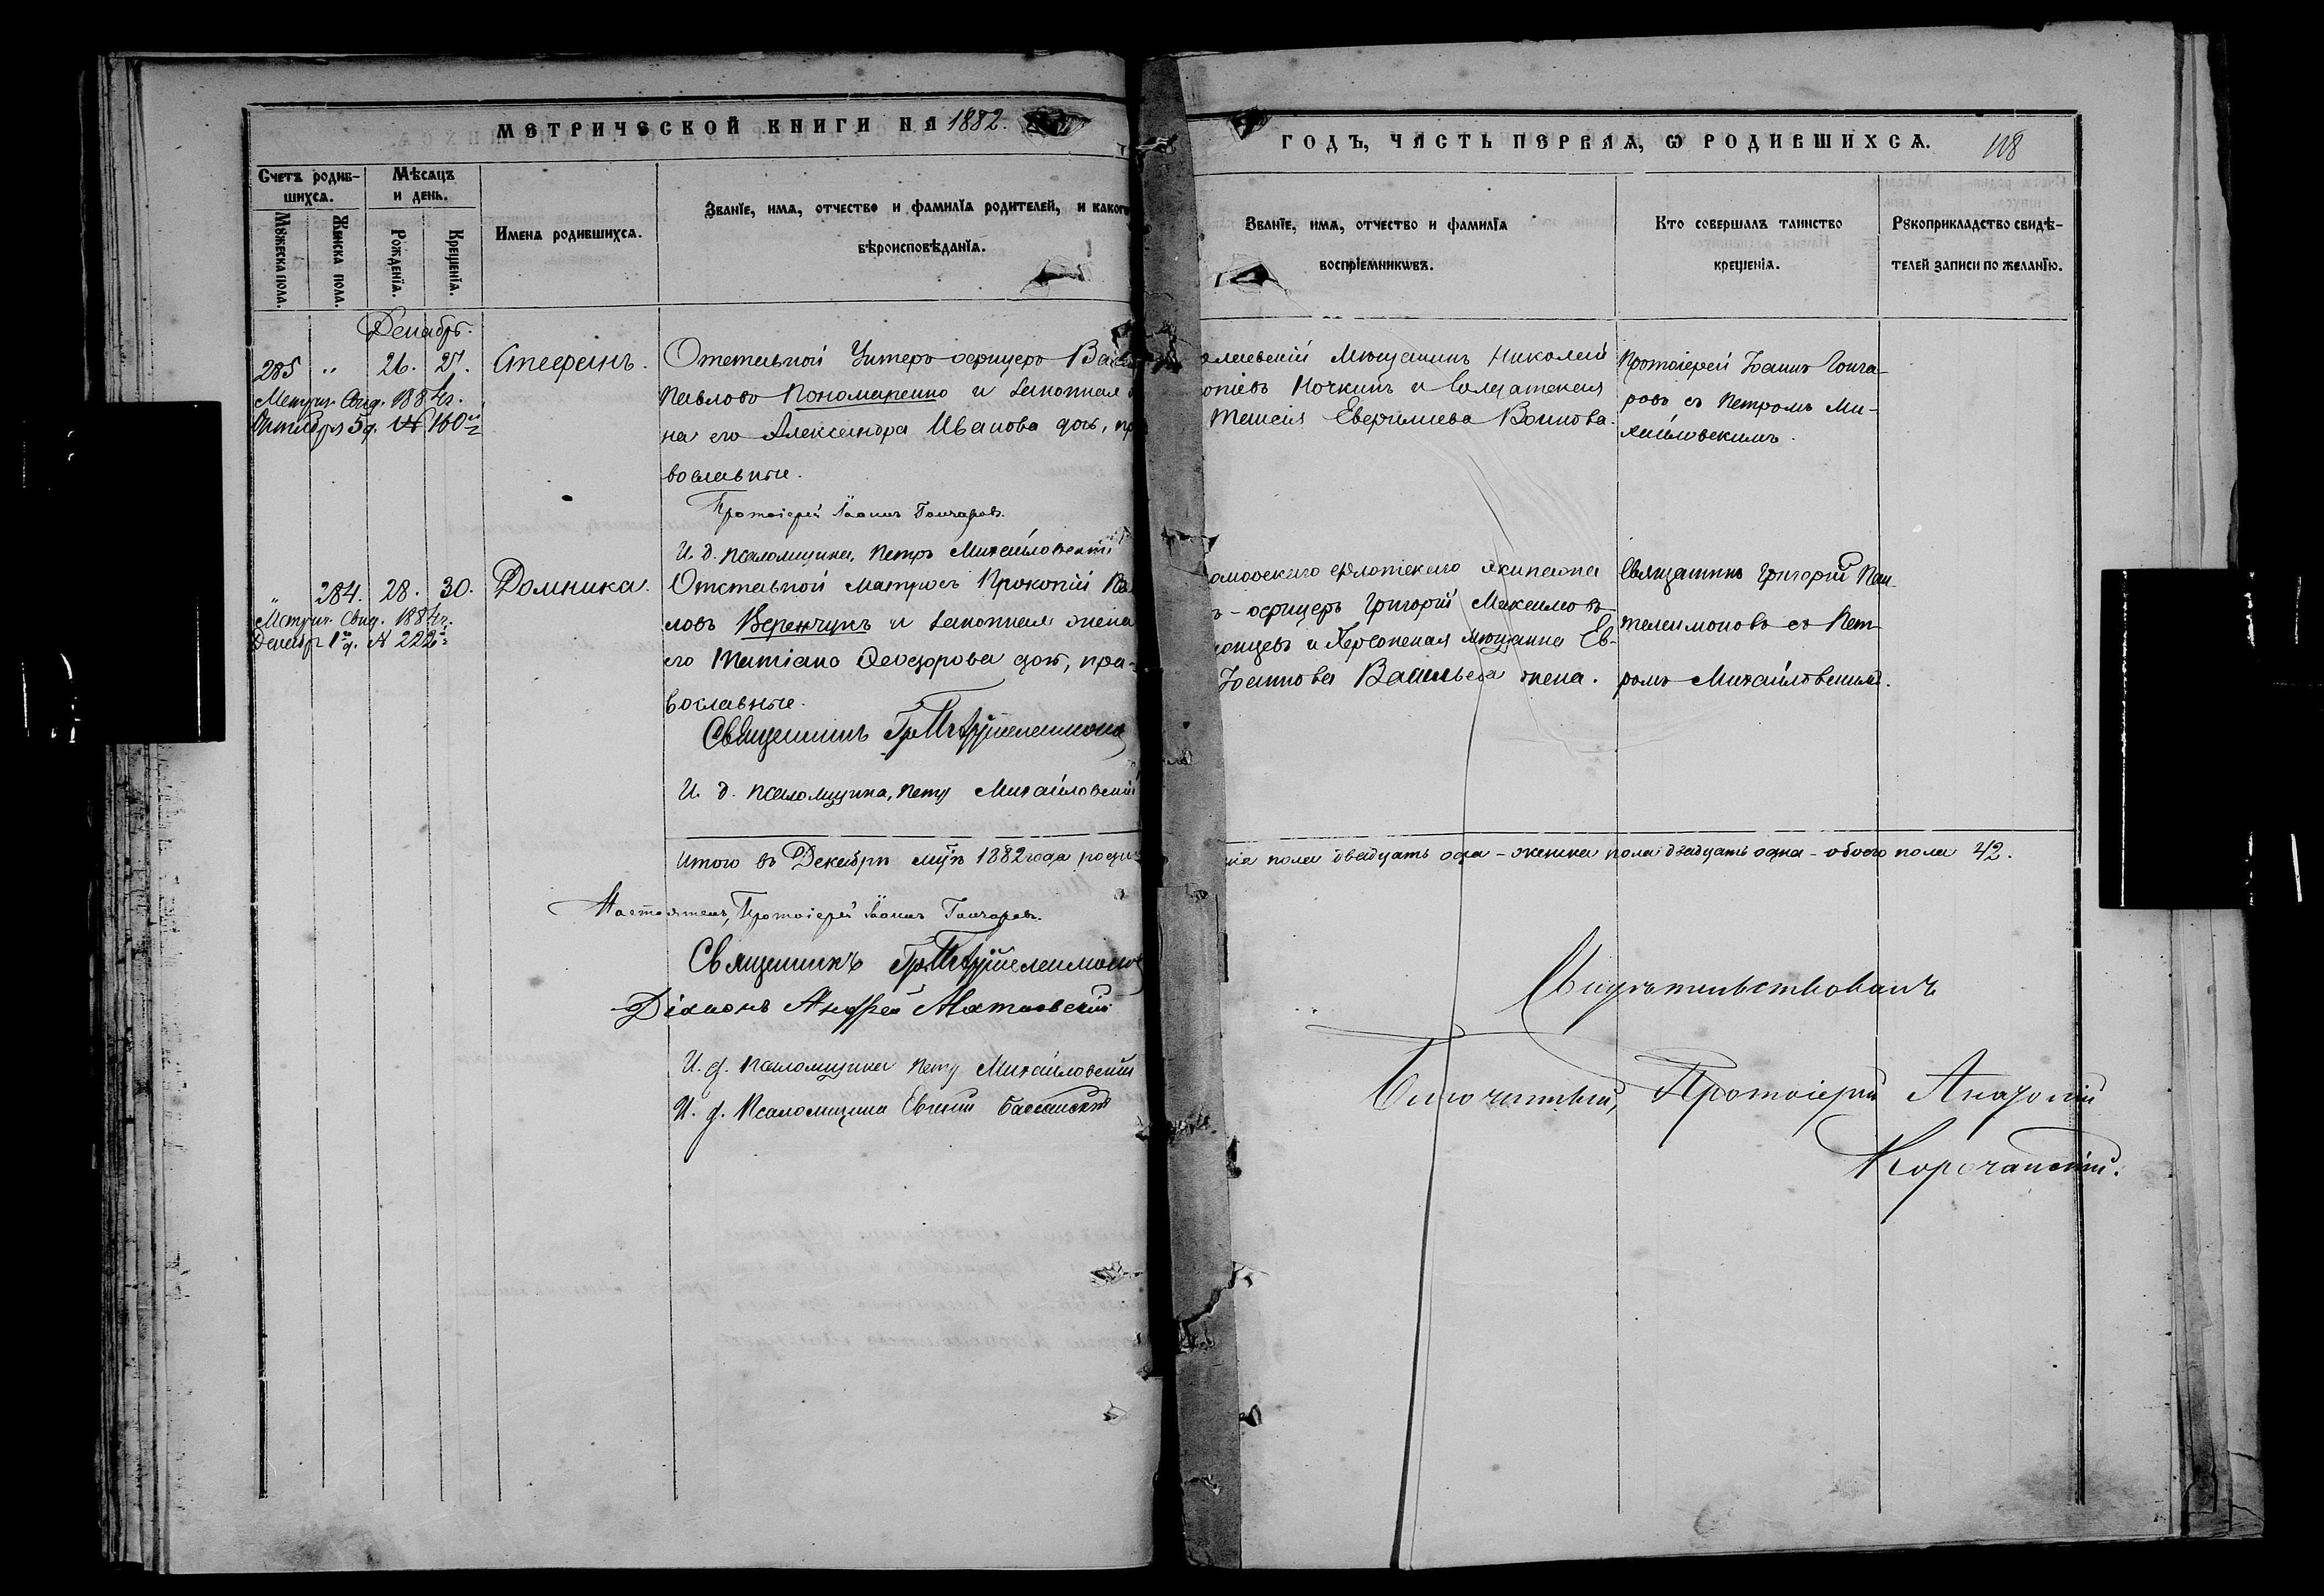 МЕТРИЧЕСКОЙ КНИГИ НА 1882.
ГОДЪ, ЧАСТЬ ПЕРВАѦ, Ѡ РОДИВШИХСѦ. 118
Счетъ родив-
шихсѧ.
Мѣсѧцъ
и день.
Мꙋжеска пола.
Женска пола.
Рожденїѧ.
Крещенїѧ.
Имена родившихсѧ.
Званїе, имѧ, отчество и фамилїѧ родителей, и какого
вѣроисповѣданїѧ.
Званїе, имѧ, отчество и фамилїѧ
воспрїемникѡвъ.
Кто совершалъ таинство
крещенїѧ.
Рꙋкоприкладство свидѣ-
телей записи по желанїю.
Декабрь.
285 " 26. 27. Стефанъ.
Метрич. Свид. 1884г.
Октября 5 д. № 160
Отставной Унтеръ офицеръ
Павловъ Пономаренко и законная
на его Александра Иванова дочь, пр
вославные.
Протоіерей Іоаннъ Гончаровъ.
И. д. псаломщика, Петръ Михайловскій
олаевскій Мѣщанинъ Николай
Кочкинъ и Солдатская
Таисія Воинова.
Протоіерей Іоаннъ Гонча-
ровъ съ Петромъ Ми-
хайловскимъ.
" 284. 28. 30. Домника.
Метрич. Свид. 1884г.
Декабр 1 д. № 222
Отставной матросъ Прокопій Па
ловъ Веренчукъ и законная жена
его Татіана Ѳеодорова дочь, пра-
вославные.
Священникъ Гр. Пантелеимоновъ
И. д. псаломщика, Петръ Михайловскій
флотскаго экипажа
ъ-офицеръ Григорій Максимовъ
и Херсонская мѣщанка Ев-
Іоаннова Васильева жена.
Священникъ Григорій Пан-
телеимоновъ съ Пет-
ромъ Михайловскимъ.
Итого въ Декабрѣ мцѣ 1882 года родил
ска пола двадцать одна - женска пола двадцать одна - обоего пола 42.
Настоятель, Протоіерей Іоаннъ Гончаровъ.
Священникъ Гр. Пантелеимоновъ
Діаконъ Андрей
И. д. псаломщика Петръ Михайловскій
И. д. Псаломщика Евгеній
Свидѣтельствовалъ
Благочинный, Протоіерей Анатолій
Корочанскій.